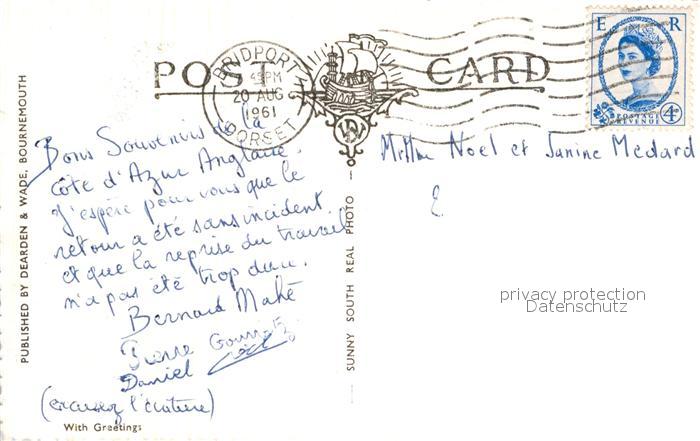 POST CARD
BRIDPORT
45PM
20 AUG
1961
DORSET
E R
POSTAGE
REVENUE
4D
PUBLISHED BY DEARDEN & WADE, BOURNEMOUTH
Bons Souvenirs de la
côte d'Azur Anglaise.
J'espère pour vous que le
retour a été sans incident
et que la reprise du travail
n'a pas été trop dure.
Bernard Mahé
Pierre
Daniel
(excusez l'écriture)
With Greetings
SUNNY SOUTH REAL PHOTO
W
Mr Mme Noel et Janine Medard
privacy protection
Datenschutz